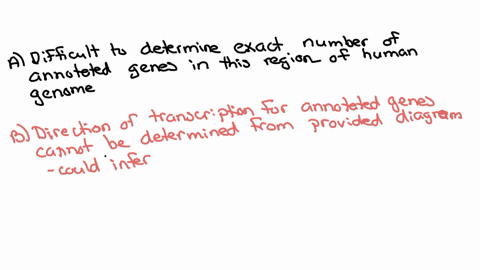 A) Difficult to determine exact number of
annoteted genes in this region of human
genome
B) Direction of transcription for annoteted genes
cannot be determined from provided diagram
- could infer